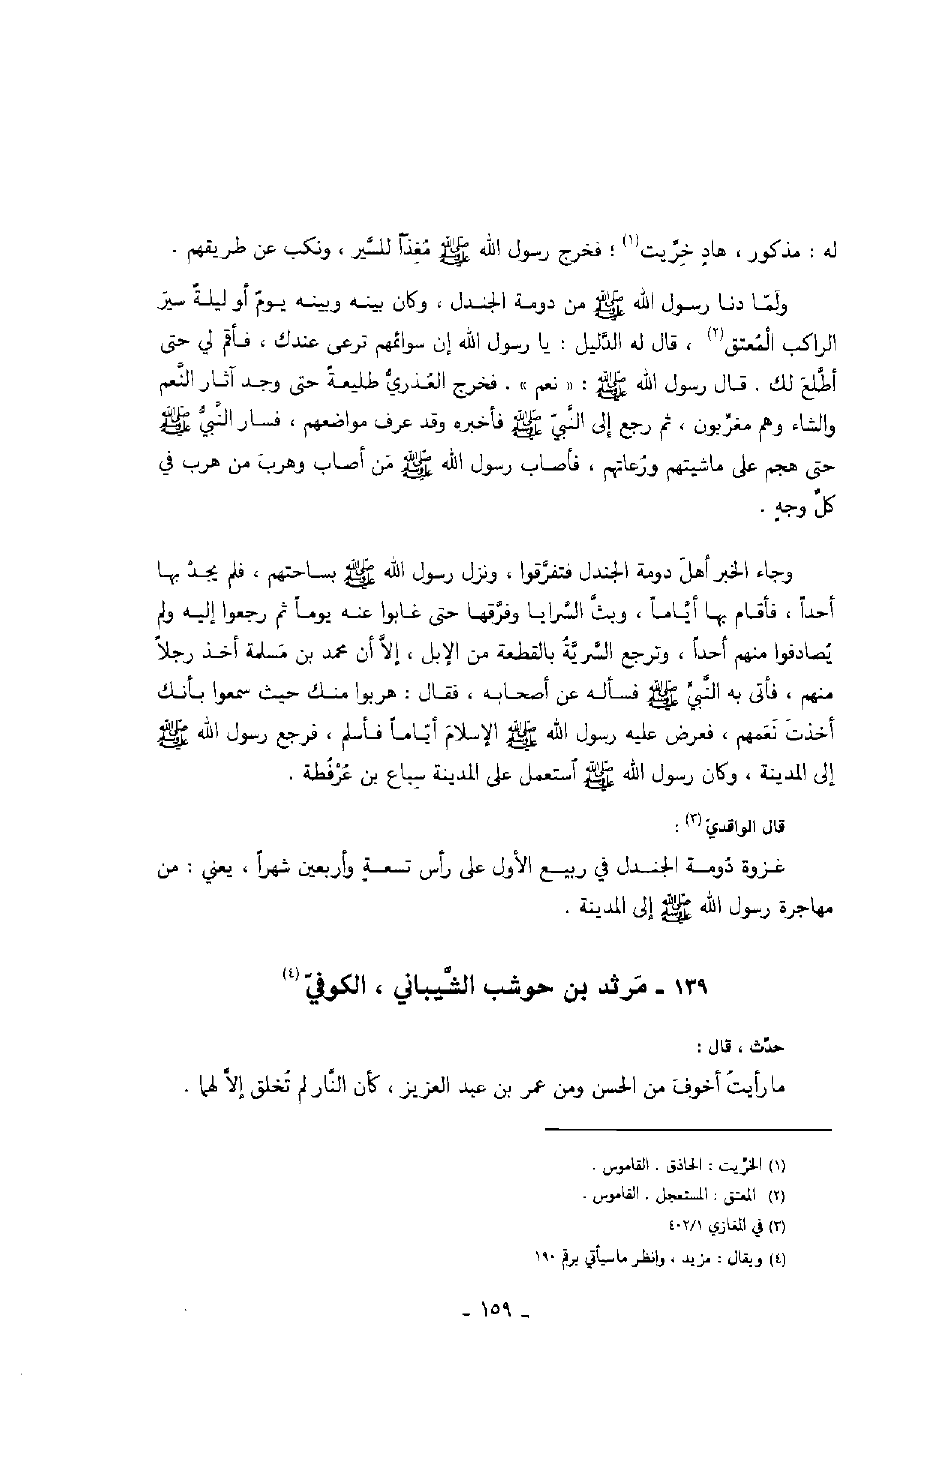 له : مذكور ، هادٍ خِرِّيت(١) ؛ فخرج رسول الله ﷺ مُغِذّاً للسَّير ، ونكب عن طريقهم .
ولَمّا دنا رسول الله ﷺ من دومة الجندل ، وكان بينه وبينه يومٌ أو ليلةٌ سيرَ
الراكب الْمُعتق(٢) ، قال له الدَّليل : يا رسول الله إن سوائمهم ترعى عندك ، فأقم لي حتى
أطَّلعَ لك . قال رسول الله ﷺ : « نعم » . فخرج العُذريُّ طليعةً حتى وجد آثار النَّعم
والشاء وهم مغرِّبون ، ثم رجع إلى النَّبيّ ﷺ فأخبره وقد عرف مواضعهم ، فسار النَّبيُّ ﷺ
حتى هجم على ماشيتهم ورُعاتهم ، فأصاب رسول الله ﷺ مَن أصاب وهربَ من هرب في
كلِّ وجهٍ .
وجاء الخبر أهلَ دومة الجندل فتفرَّقوا ، ونزل رسول الله ﷺ بساحتهم ، فلم يجدْ بها
أحداً ، فأقام بها أيّاماً ، وبثَّ السَّرايا وفرَّقها حتى غابوا عنه يوماً ثم رجعوا إليه ولم
يُصادفوا منهم أحداً ، وترجع السَّريَّةُ بالقطعة من الإبل ، إلاَّ أن محمد بن مَسلمة أخذ رجلاً
منهم ، فأتى به النَّبيَّ ﷺ فسأله عن أصحابه ، فقال : هربوا منك حيث سمعوا بأنك
أخذتَ نَعَمهم ، فعرض عليه رسول الله ﷺ الإسلامَ أيّاماً فأسلم ، فرجع رسول الله ﷺ
إلى المدينة ، وكان رسول الله ﷺ آستعمل على المدينة سِباع بن عُرْفُطة .
قال الواقديّ(٣) :
غزوة دُومة الجندل في ربيع الأول على رأس تسعةٍ وأربعين شهراً ، يعني : من
مهاجرة رسول الله ﷺ إلى المدينة .
١٣٩ ـ مَرثد بن حوشب الشَّيباني ، الكوفيّ(٤)
حدَّث ، قال :
ما رأيتُ أخوفَ من الحسن ومن عمر بن عبد العزيز ، كأن النَّار لم تُخلق إلاَّ لهما .
(١) الخرِّيت : الحاذق . القاموس .
(٢) المعتق : المستعجل . القاموس .
(٣) في المغازي ٤٠٢/١
(٤) ويقال : مزيد ، وانظر ما سيأتي برقم ١٩٠
ـ ١٥٩ ـ